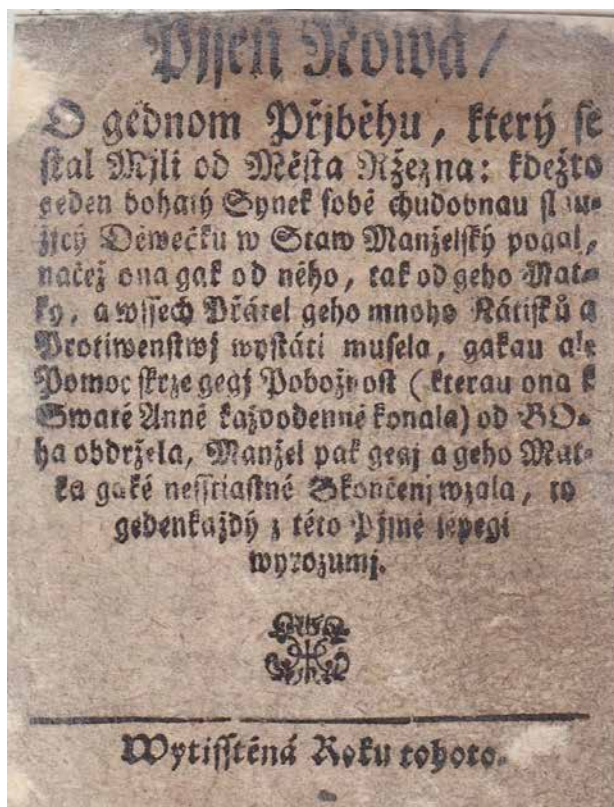 Pjseň Nowá/
O gednom Přjběhu, který se
stal Mjli od Města Ržezna: kdežto
geden bohatý Synek sobě chudobnau slau-
žjcý Děwečku w Staw Manželský pogal,
načež ona gak od něho, tak od geho Mat-
ky, a wssech Přátel geho mnoho Nátisků a
Protiwenstwj wystáti musela, gakau ale
Pomoc skrze gegj Pobožnost (kterau ona k
Swaté Anně každodenně konala) od BO-
ha obdržela, Manžel pak gegj a geho Mat-
ka gaké nessťastné Skončenj wzala, to
gedenkaždý z této Pjsně lepegi
wyrozumj.
Wytisstěná Roku tohoto.